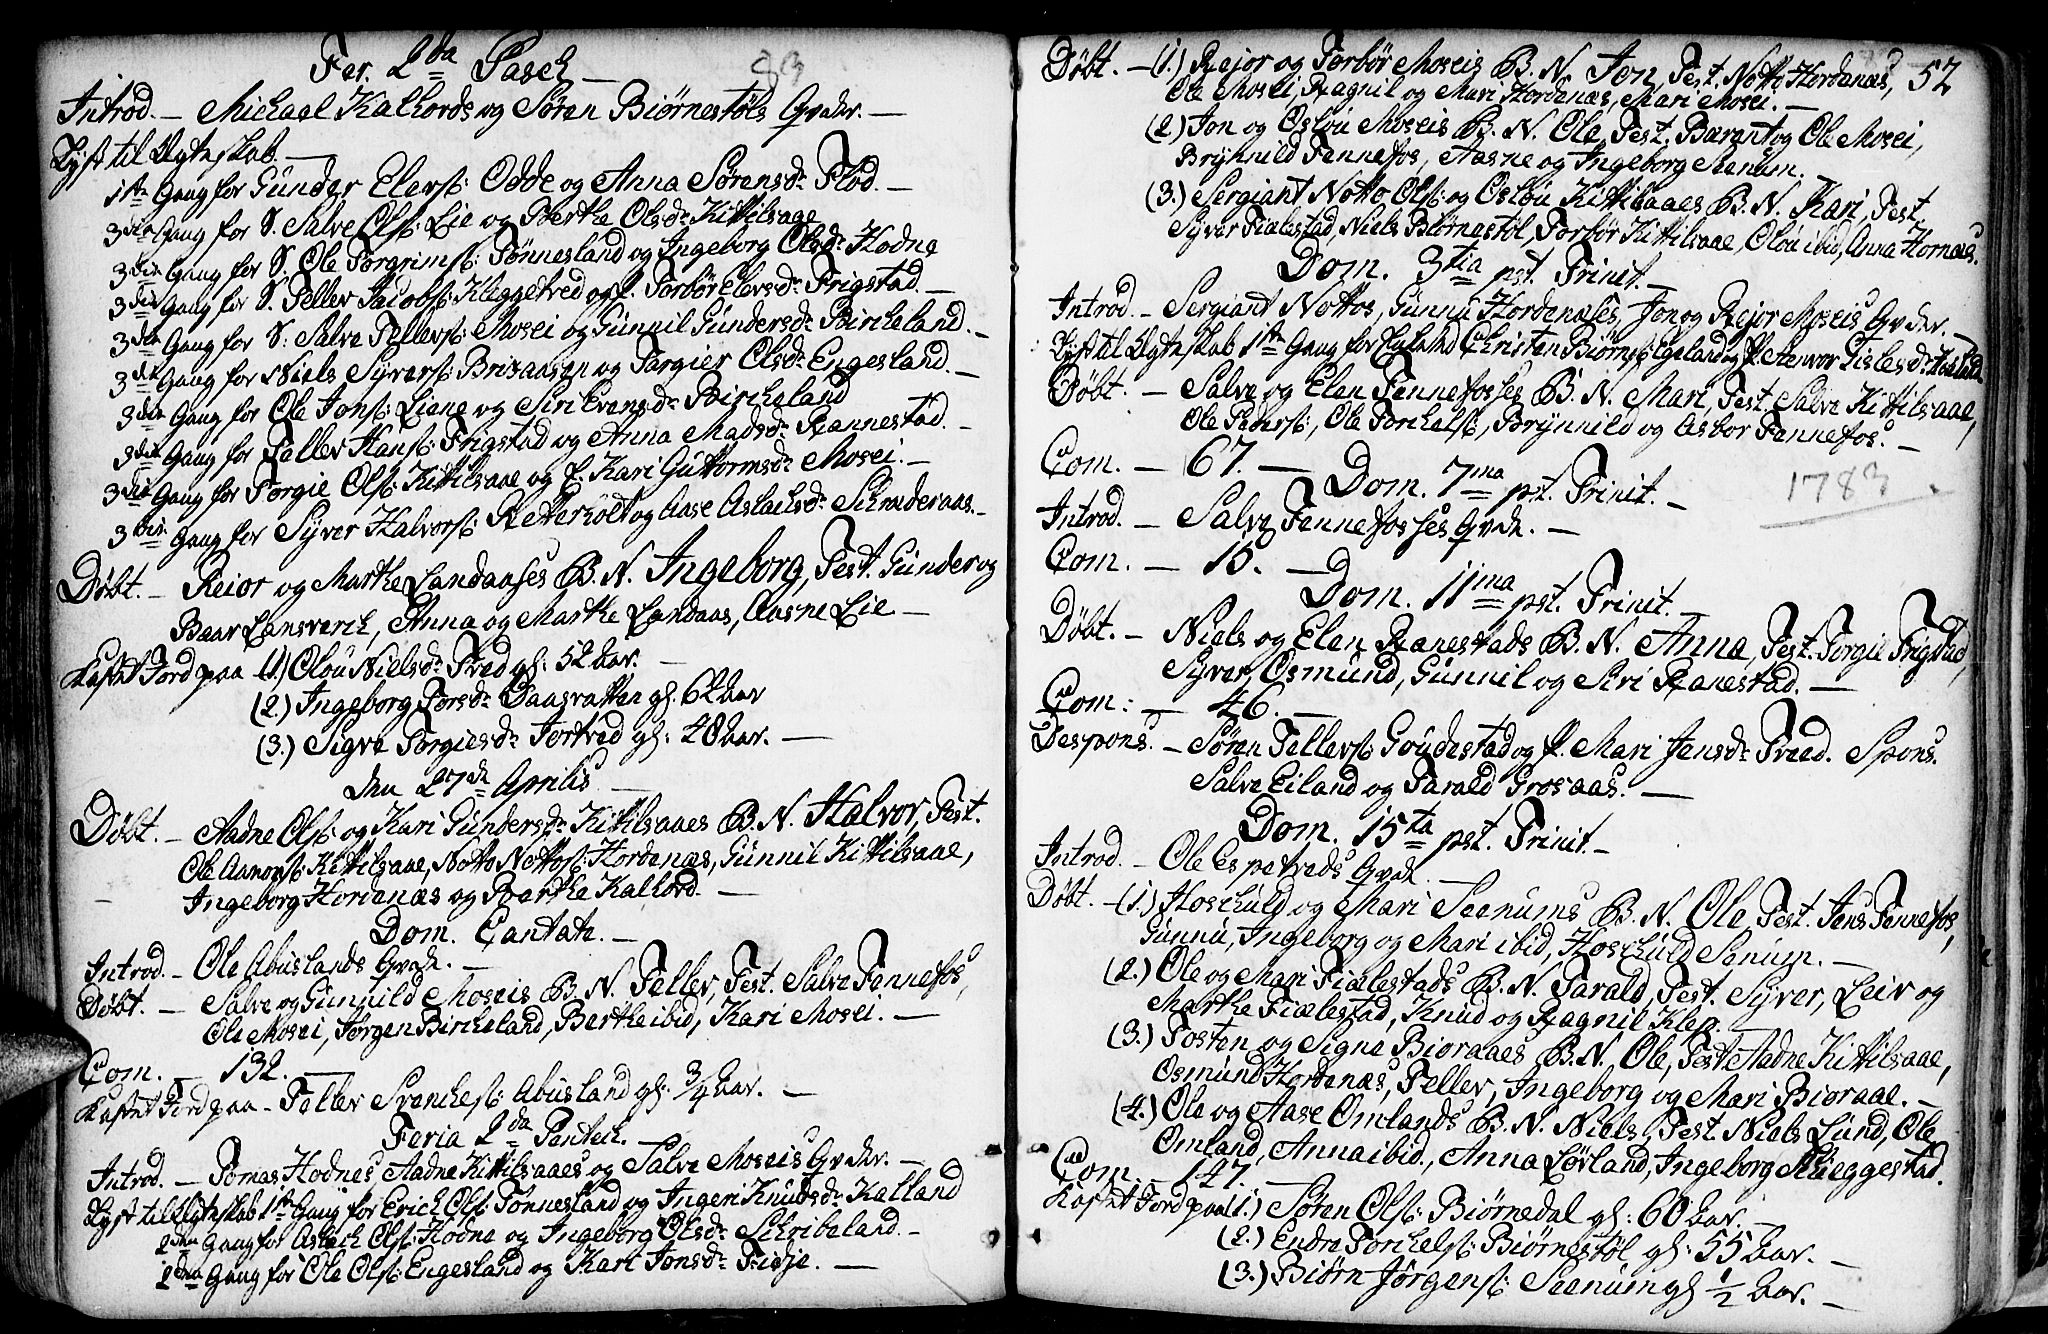 Fer. 2da Pasch — 83
Introd. — Michael Kalhords og Søren Biørnestøls Qvdr. —
Lyst til Ægteskab. —
1ste Gang for Gunder Elers: Odde og Anna Sørensdr Flod. —
3die Gang for S. Salve Ols: Lie og Berthe Olsdr Kittilsaae
3die Gang for S. Ole Torgrims: Tønnesland og Ingeborg Olsdr Hodne
3die Gang for S. Teller Jacobs: Kleggetved og P. Torbør Elersdr Frigstad. —
3die Gang for S. Salve Tellevs: Mosei og Gunnil Gundersdr Bircheland. —
3die Gang for Niels Syvers: Breaasen og Targier Olsdr Engesland. —
3die Gang for Ole Jons: Liene og Siri Evensdr Bircheland
3die Gang for Teller Hans: Frigstad og Anna Madsdr Rannestad. —
3die Gang for Torgie Ols: Kittilsaae og P. Kari Guttormsdr Mosei. —
3die Gang for Syver Halvors: Retterholt og Aase Aslachsdr Schraderaas. —
Døbt. — Reior og Marthe Landaases B. N. Ingeborg, Test. Gunder og
Baar Lansverch, Anna og Marthe Landaas, Aasne Lie —
Kastet Jord paa (1.) Olou Nielsdr Tved gl: 52 aar. —
(2.) Ingeborg Torsdr Daasvatten gl: 62 aar
(3.) Sigve Torgiesdr Tortved gl: 48 aar. —
den 27de Aprilis —
Døbt. — Aadne Ols: og Kari Gundersdr Kittilsaaes B. N. Halvor, Test.
Ole Aanons: Kittilsaae, Notto Nottos: Hordenæs, Gunnil Kittilsaae,
Ingeborg Hordenæs og Berthe Kalhord. —
Dom. Cantate. —
Introd. — Ole Abuslands Qvde. —
Døbt. — Salve og Gunnild Moseis B. N. Teller, Test. Salve Fennefos,
Ole Mosei, Jørgen Bircheland, Berthe ibid, Kari Mosei. —
Com. — 132. —
Kastet Jord paa — Teller Svenches: Abusland gl: 3/4 aar. —
Feria 2da Pentech. —
Introd. — Tomas Hodnes, Aadne Kittilsaaes og Salve Moseis Qvder. —
Lyst til Ægteskab 1ste Gang for Erich Ols: Tønnesland og Ingeri Knudsdr Kalland
2den Gang for Aslach Ols: Hodne og Ingeborg Olsdr Schribeland. —
2den Gang for Ole Ols: Engesland og Kari Jonsdr Fidje. —
52
Døbt. — (1.) Rejor og Torbør Moseis B. N. Jon, Test. Notto Hordenæs,
Ole Mosei, Ragnil og Mari Hordenæs, Mari Mosei. —
(2) Jon og Oslou Moseis B. N. Ole, Test. Berant og Ole Mosei,
Brynnild Fennefos, Aasne og Ingeborg Senum.
(3.) Sergiant Notto Ols: og Oslou Kittilsaaes B. N. Kari, Test.
Syver Fialestad, Niels Biørnestøl, Torbør Kittilsaae, Olou ibid, Anna Hornæs.
Dom. 3tia pst. Trinit. —
Introd. — Sergiant Nottos, Gunnu Hordenæses, Jon og Rejor Moseis Qvder. —
Lyst til Ægteskab 1ste Gang for Christen Biørns: Egeland og P. Aanvor Gislesdr
Døbt. — Salve og Elen Fennefosses B. N. Mari, Test. Salve Kittilsaae,
Ole Peders:, Ole Torchels:, Brynnild og Asbor Fennefos. —
Com. — 67. —
Dom. 7ma pst. Trinit. —
1783
Introd. — Salve Fennefosses Qvde. —
Com. — 15. —
Dom. 11ma pst. Trinit. —
Døbt. — Niels og Elen Ranestads B. N. Anna, Test. Torgie Frigstad,
Syver, Osmund, Gunnil og Siri Ranestad. —
Com: — 46. —
Despons. — Søren Tellevs: Goudestad og P. Mari Jensdr Tved. Spons.
Salve Eiland og Tarald Grosaas. —
Dom. 15ta pst. Trinit. —
Introd. — Ole Espetveds Qvde. —
Døbt. — (1.) Hoschuld og Mari Seenums B. N. Ole, Test. Jens Fennefos,
Gunnu, Ingeborg og Mari ibid, Hoschuld Senum. —
(2.) Ole og Mari Fialestads B. N. Tarald, Test. Syver, Leiv og
Marthe Fialestad, Knud og Ragnil Klep.
(3.) Tosten og Signe Bioraaes B. N. Ole, Test Aadne Kittilsaae,
Osmund Hordenæs, Teller, Ingeborg og Mari Bioraae. —
(4.) Ole og Aase Omlands B. N. Niels, Test. Niels Lund, Ole
Omland, Anna ibid., Anna Løvland, Ingeborg Kleggestad.
Com. — 147. —
Kastet Jord paa (1.) Søren Ols: Biørnedal gl: 60 aar. —
(2.) Endre Torchels: Biørnestøl gl: 55 aar. —
(3.) Biørn Jørgens: Seenum gl 1/2 aar. —